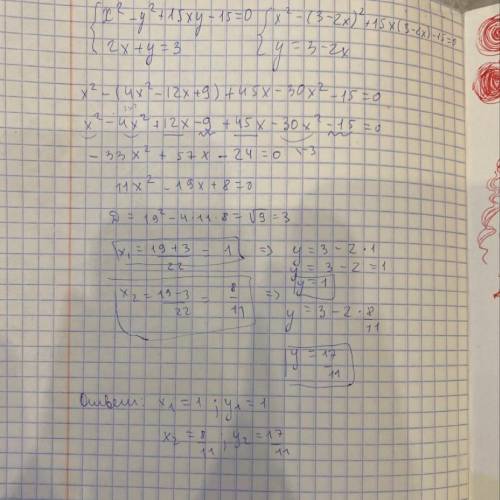 { x² - y² + 15xy - 15 = 0   { x² - (3-2x)² + 15x(3-2x) - 15 = 0
{ 2x + y = 3   { y = 3 - 2x
x² - (4x² - 12x + 9) + 45x - 30x² - 15 = 0
x² - 4x² + 12x - 9 + 45x - 30x² - 15 = 0
- 33x² + 57x - 24 = 0
11x² - 19x + 8 = 0
D = 19² - 4·11·8 = √9 = 3
x₁ = 19+3/22 = 1 => y = 3 - 2·1
y = 3 - 2 = 1
y = 1
x₂ = 19-3/22 = 8/11 => y = 3 - 2·8/11
y = 17/11
Ответ: x₁ = 1 ; y₁ = 1
x₂ = 8/11 ; y₂ = 17/11